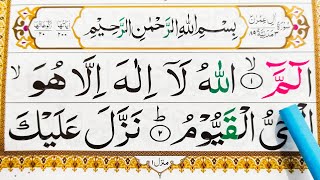 بِسْمِ اللهِ الرَّحْمٰنِ الرَّحِيْمِ
الٓمَّٓ ۙ﴿۱﴾ اللهُ لَآ اِلٰهَ اِلَّا هُوَ ۙ
الْحَىُّ الْقَيُّوْمُ ؕ﴿۲﴾ نَزَّلَ عَلَيْكَ